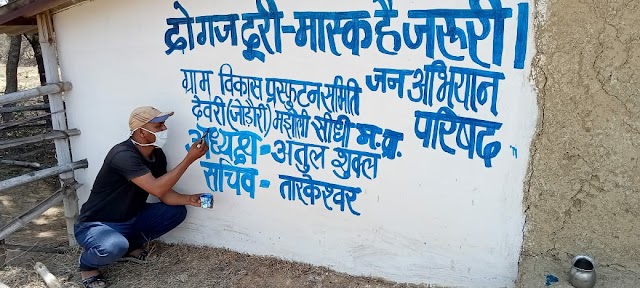 दो गज दूरी-मास्क है जरूरी।
ग्राम विकास प्रस्फुटन समिति जन अभियान
देवरी (जोड़ौरी) मझौली सीधी म.प्र. परिषद
अध्यक्ष - अतुल शुक्ल
सचिव - तारकेश्वर